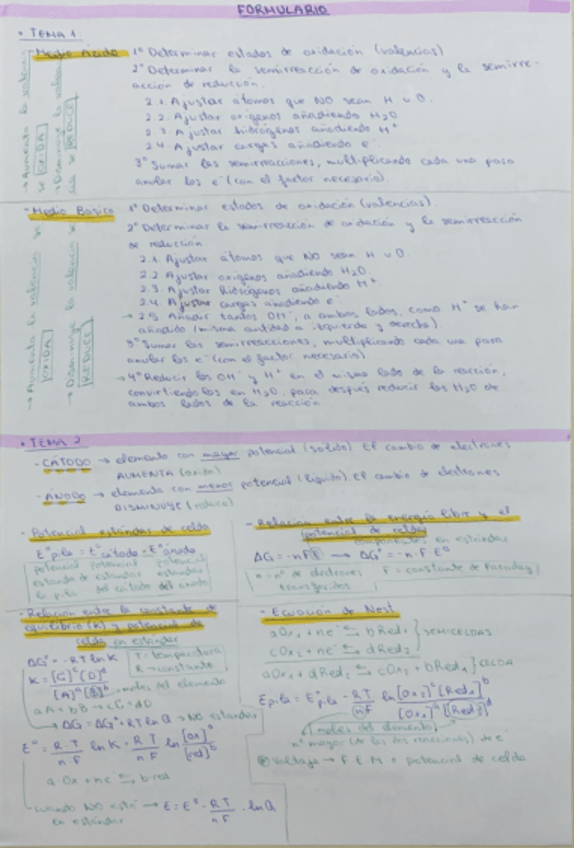 FORMULARIO
• TEMA 1:
- Medio Ácido
→ Aumenta la valencia se [OXIDA]
→ Disminuye la valencia se [REDUCE]
1º Determinar estados de oxidación (valencias)
2º Determinar la semirreacción de oxidación y la semirre-
acción de reducción.
2.1. Ajustar átomos que NO sean H u O.
2.2. Ajustar oxígenos añadiendo H₂O
2.3. Ajustar hidrógenos añadiendo H⁺
2.4. Ajustar cargas añadiendo e⁻
3º Sumar las semirreacciones, multiplicando cada una para
anular los e⁻ (con el factor necesario).
- Medio Basico
→ Aumenta la valencia se [OXIDA]
→ Disminuye la valencia se [REDUCE]
1º Determinar estados de oxidación (valencias).
2º Determinar la semirreacción de oxidación y la semirreacción
de reducción
2.1. Ajustar átomos que NO sean H u O.
2.2 Ajustar oxígenos añadiendo H₂O
2.3. Ajustar hidrógenos añadiendo H⁺
2.4. Ajustar cargas añadiendo e⁻
→ 2.5 Añadir tantos OH⁻, a ambos lados, como H⁺ se han
añadido (misma cantidad a izquierda y derecha)
3º Sumar las semirreacciones, multiplicando cada una para
anular los e⁻ (con el factor necesario)
→ 4º Reducir los OH⁻ y H⁺ en el mismo lado de la reacción,
convirtiendolos en H₂O, para después reducir los H₂O de
ambos lados de la reacción
• TEMA 2
- CÁTODO → elemento con mayor potencial (solido) el cambio de electrones
AUMENTA (oxida)
- ÁNODO → elemento con menor potencial (líquido). el cambio de electrones
DISMINUYE (reduce)
- Potencial estándar de celda
E°pila = E°cátodo - E°ánodo
potencial potencial potencial
estándar de estándar estándar
la pila del cátodo del ánodo
- Relación entre la energía libre y el
potencial de celda
componentes en estándar
ΔG = -nFE → ΔG° = -n·F·E°
n = nº de electrones transferidos
F = constante de Faraday
- Relación entre la constante de
equilibrio (K) y potencial de
celda en estándar
ΔG° = -RT ln K
T = temperatura
R → constante
K = [C]ᶜ[D]ᵈ / [A]ᵃ[B]ᵇ → moles del elemento
aA + bB → cC + dD
→ ΔG = ΔG° + RT ln Q → NO estándar
E° = R·T / nF ln K = RT / nF ln [Ox]ᵃ / [red]ᵇ
a Ox + ne⁻ ⇆ b red
cuando NO está → E = E° - RT / nF · ln Q
en estándar
- Ecuación de Nest
aOx₁ + ne⁻ ⇆ bRed₁ } SEMICELDAS
cOx₂ + ne⁻ ⇆ dRed₂
aOx₁ + dRed₂ ⇆ cOx₂ + bRed₁ } CELDA
Epila = E°pila - RT / nF ln [Ox₂]ᶜ[Red₁]ᵇ / [Ox₁]ᵃ[Red₂]ᵈ
moles del elemento
nº mayor (de las dos reacciones) de e⁻
Voltaje → F.E.M = potencial de celda